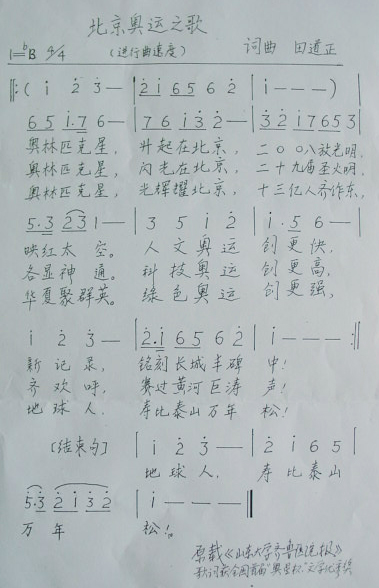 北京奥运之歌
1=bB 4/4 (进行曲速度) 词曲 田道正
‖:( i 2 3 — | 2 i 6 5 6 2 | i — — — ) |
6 5 i. 7 6 — | 7 6 i 3 2 — | 3 2 i 7 6 5 3 |
奥林匹克星， 升起在北京， 二〇〇八放光明，
奥林匹克星， 闪光在北京， 二十九届圣火明，
奥林匹克星， 光辉耀北京， 十三亿人齐作东，
5. 3 2 3 1 — | 3 5 i 2 | i . 5 6 — |
映红太 空。 人文奥运 创更快，
各显神 通。 科技奥运 创更高，
华夏聚群英。 绿色奥运 创更强，
i 2 3 — | 2. i 6 5 6 2 | i — — — :‖
新记录， 铭刻长城丰碑 中！
齐欢呼， 赛过黄河巨涛 声！
地球人， 寿比泰山万年 松！
[结束句] | i 2 3 — — | 2 i 6 5 |
地球人， 寿比泰山
5. 3 2 i 3 2 | i — — — ‖
万年 松！
原载《山东大学齐鲁医院报》